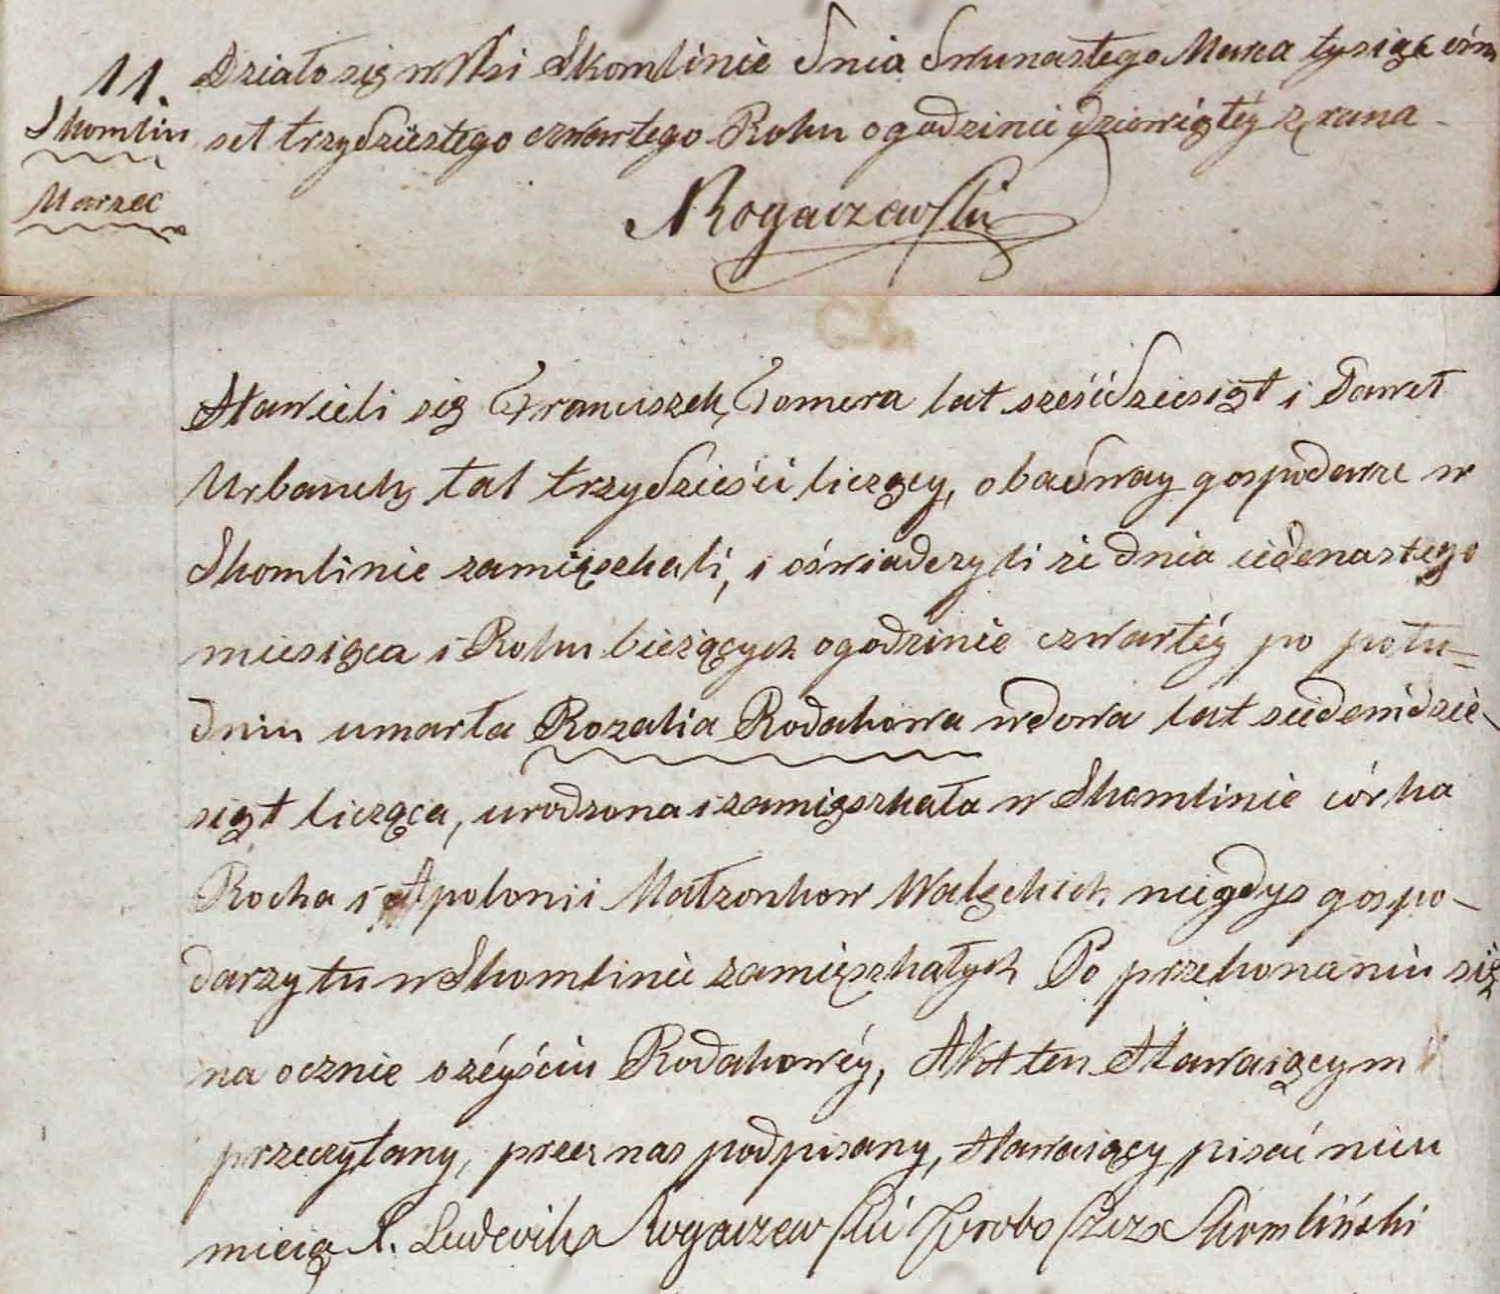 11. Działo się w Wsi Skomlinie dnia dwunastego Marca tysiąc ośm
Skomlin set trzydziestego czwartego Roku o godzinie dziewiątéy z rana
Marzec
XRogaczewski
Stawieli się Franciszek Tomera lat sześćdziesiąt i Paweł
Urbanek lat trzydzieści liczący, obadway gospodarze w
Skomlinie zamięszkali, i oświadczyli że dnia iedenastego
miesiąca i Roku bieżących o godzinie czwartéy po połu=
dniu umarła Rozalia Rodakowa wdowa lat siedemdzie-
siąt licząca, urodzona i zamięszkała w Skomlinie córka
Rocha i Apolonii Małzonkow Walęckich niegdys gospo-
darzy tu w Skomlinie zamięszkałych Po przekonaniu się
na ocznie o zéyściu Rodakowéy, Akt ten Stawaiącym
przeczytany, przez nas podpisany, stawaiący pisać nieu
mieią X. Ludwik Rogaczewski Proboszcz Skomliński